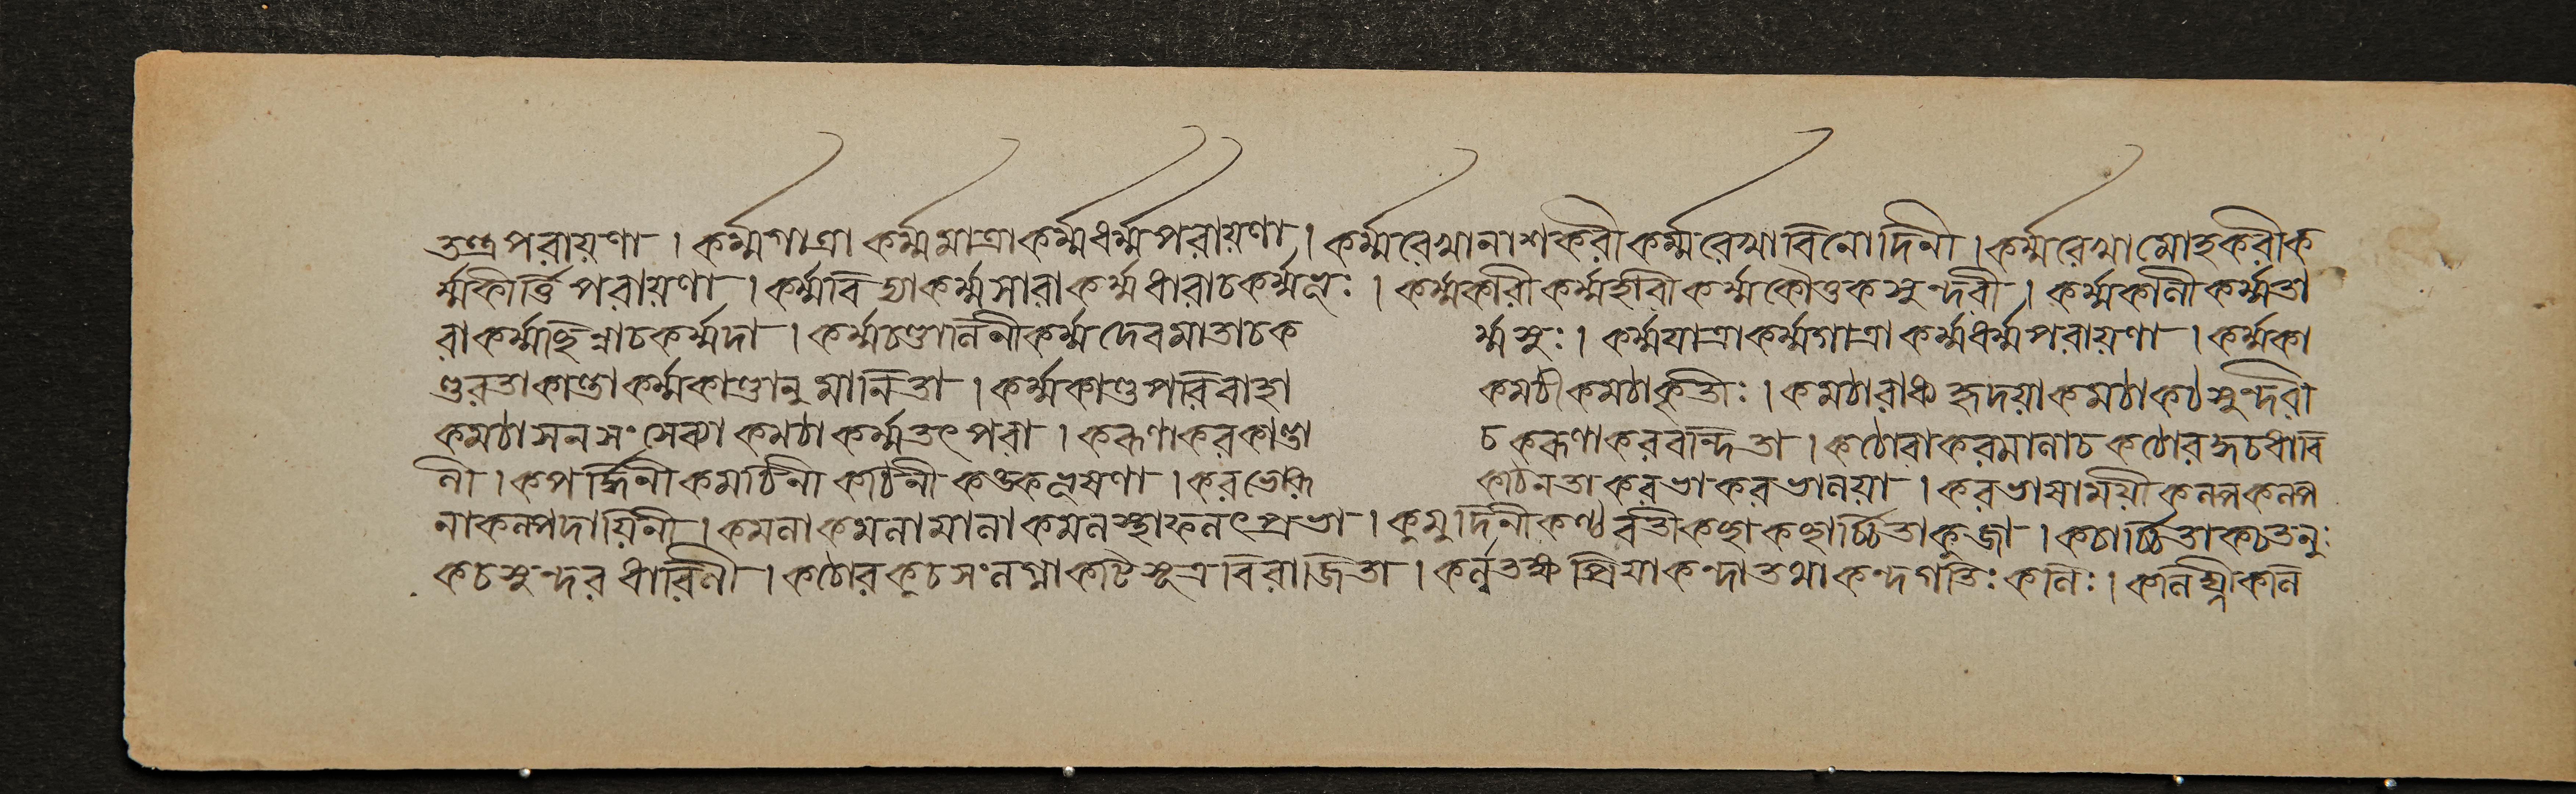 তন্ত্রপরায়ণা । কর্ম্মগাত্রা কর্ম্মমাত্রা কর্ম্মধর্ম্মপরায়ণা । কর্ম্মরেখানাশকরী কর্ম্মরেখাবিনোদিনী । কর্ম্মরেখামোহকরী ক
র্ম্মকীর্ত্তিপরায়ণা । কর্ম্মবিদ্যা কর্ম্মসারা কর্ম্মধারা চ কর্ম্মভূঃ । কর্ম্মকারী কর্ম্মহারী কর্ম্মকৌতুকসুন্দরী । কর্ম্মকালী কর্ম্মতা
রা কর্ম্মছিন্না চ কর্ম্মদা । কর্ম্মচণ্ডালিনী কর্ম্মদেবমাতা চ ক র্ম্মসুঃ । কর্ম্মযাত্রা কর্ম্মগাত্রা কর্ম্মধর্ম্মপরায়ণা । কর্ম্মকা
ণ্ডরতা কাণ্ডা কর্ম্মকাণ্ডানুমানিতা । কর্ম্মকাণ্ডপরিবাহা কমঠী কমঠাকৃতিঃ । কমঠারাধ্যহৃদয়া কমঠাকণ্ঠসুন্দরী
কমঠাসনসংসেব্যা কমঠা কর্ম্মতৎপরা । করুণাকরকাণ্ডা চ করুণাকরবন্দিতা । কঠোরা করমালা চ কঠোরকুচধারি
ণী । কপর্দ্দিনী কমঠিনী কঠিনী কঙ্কভূষণা । করভোরুঃ কঠিনতা করভা করভালয়া । করভাষাময়ী কল্পা কল্প
না কল্পদায়িনী । কমলা কমলামালা কমলস্থা ফলৎপ্রভা । কুমুদিনী কণ্ঠবতী কহ্লা কহ্লার্চ্চিতা কুব্জা । কচার্চ্চিতা কচতনুঃ
কচসুন্দরধারিণী । কঠোরকুচসংলগ্না কটিসূত্রবিরাজিতা । কর্ন্নভক্ষপ্রিয়া কন্দা তথা কন্দগতিঃ কলিঃ । কলিঘ্নী কলি